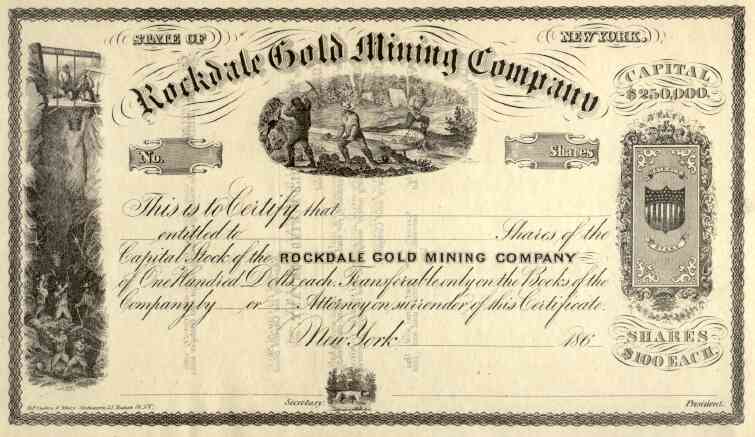 STATE OF NEW YORK.
Rockdale Gold Mining Company
CAPITAL
$250,000.
No. Shares
This is to Certify that
entitled to Shares of the
Capital Stock of the ROCKDALE GOLD MINING COMPANY
of One Hundred Dolls. each. Transferable only on the Books of the
Company by or Attorney on surrender of this Certificate.
New York 186
SHARES
$100 EACH.
Secretary. President.